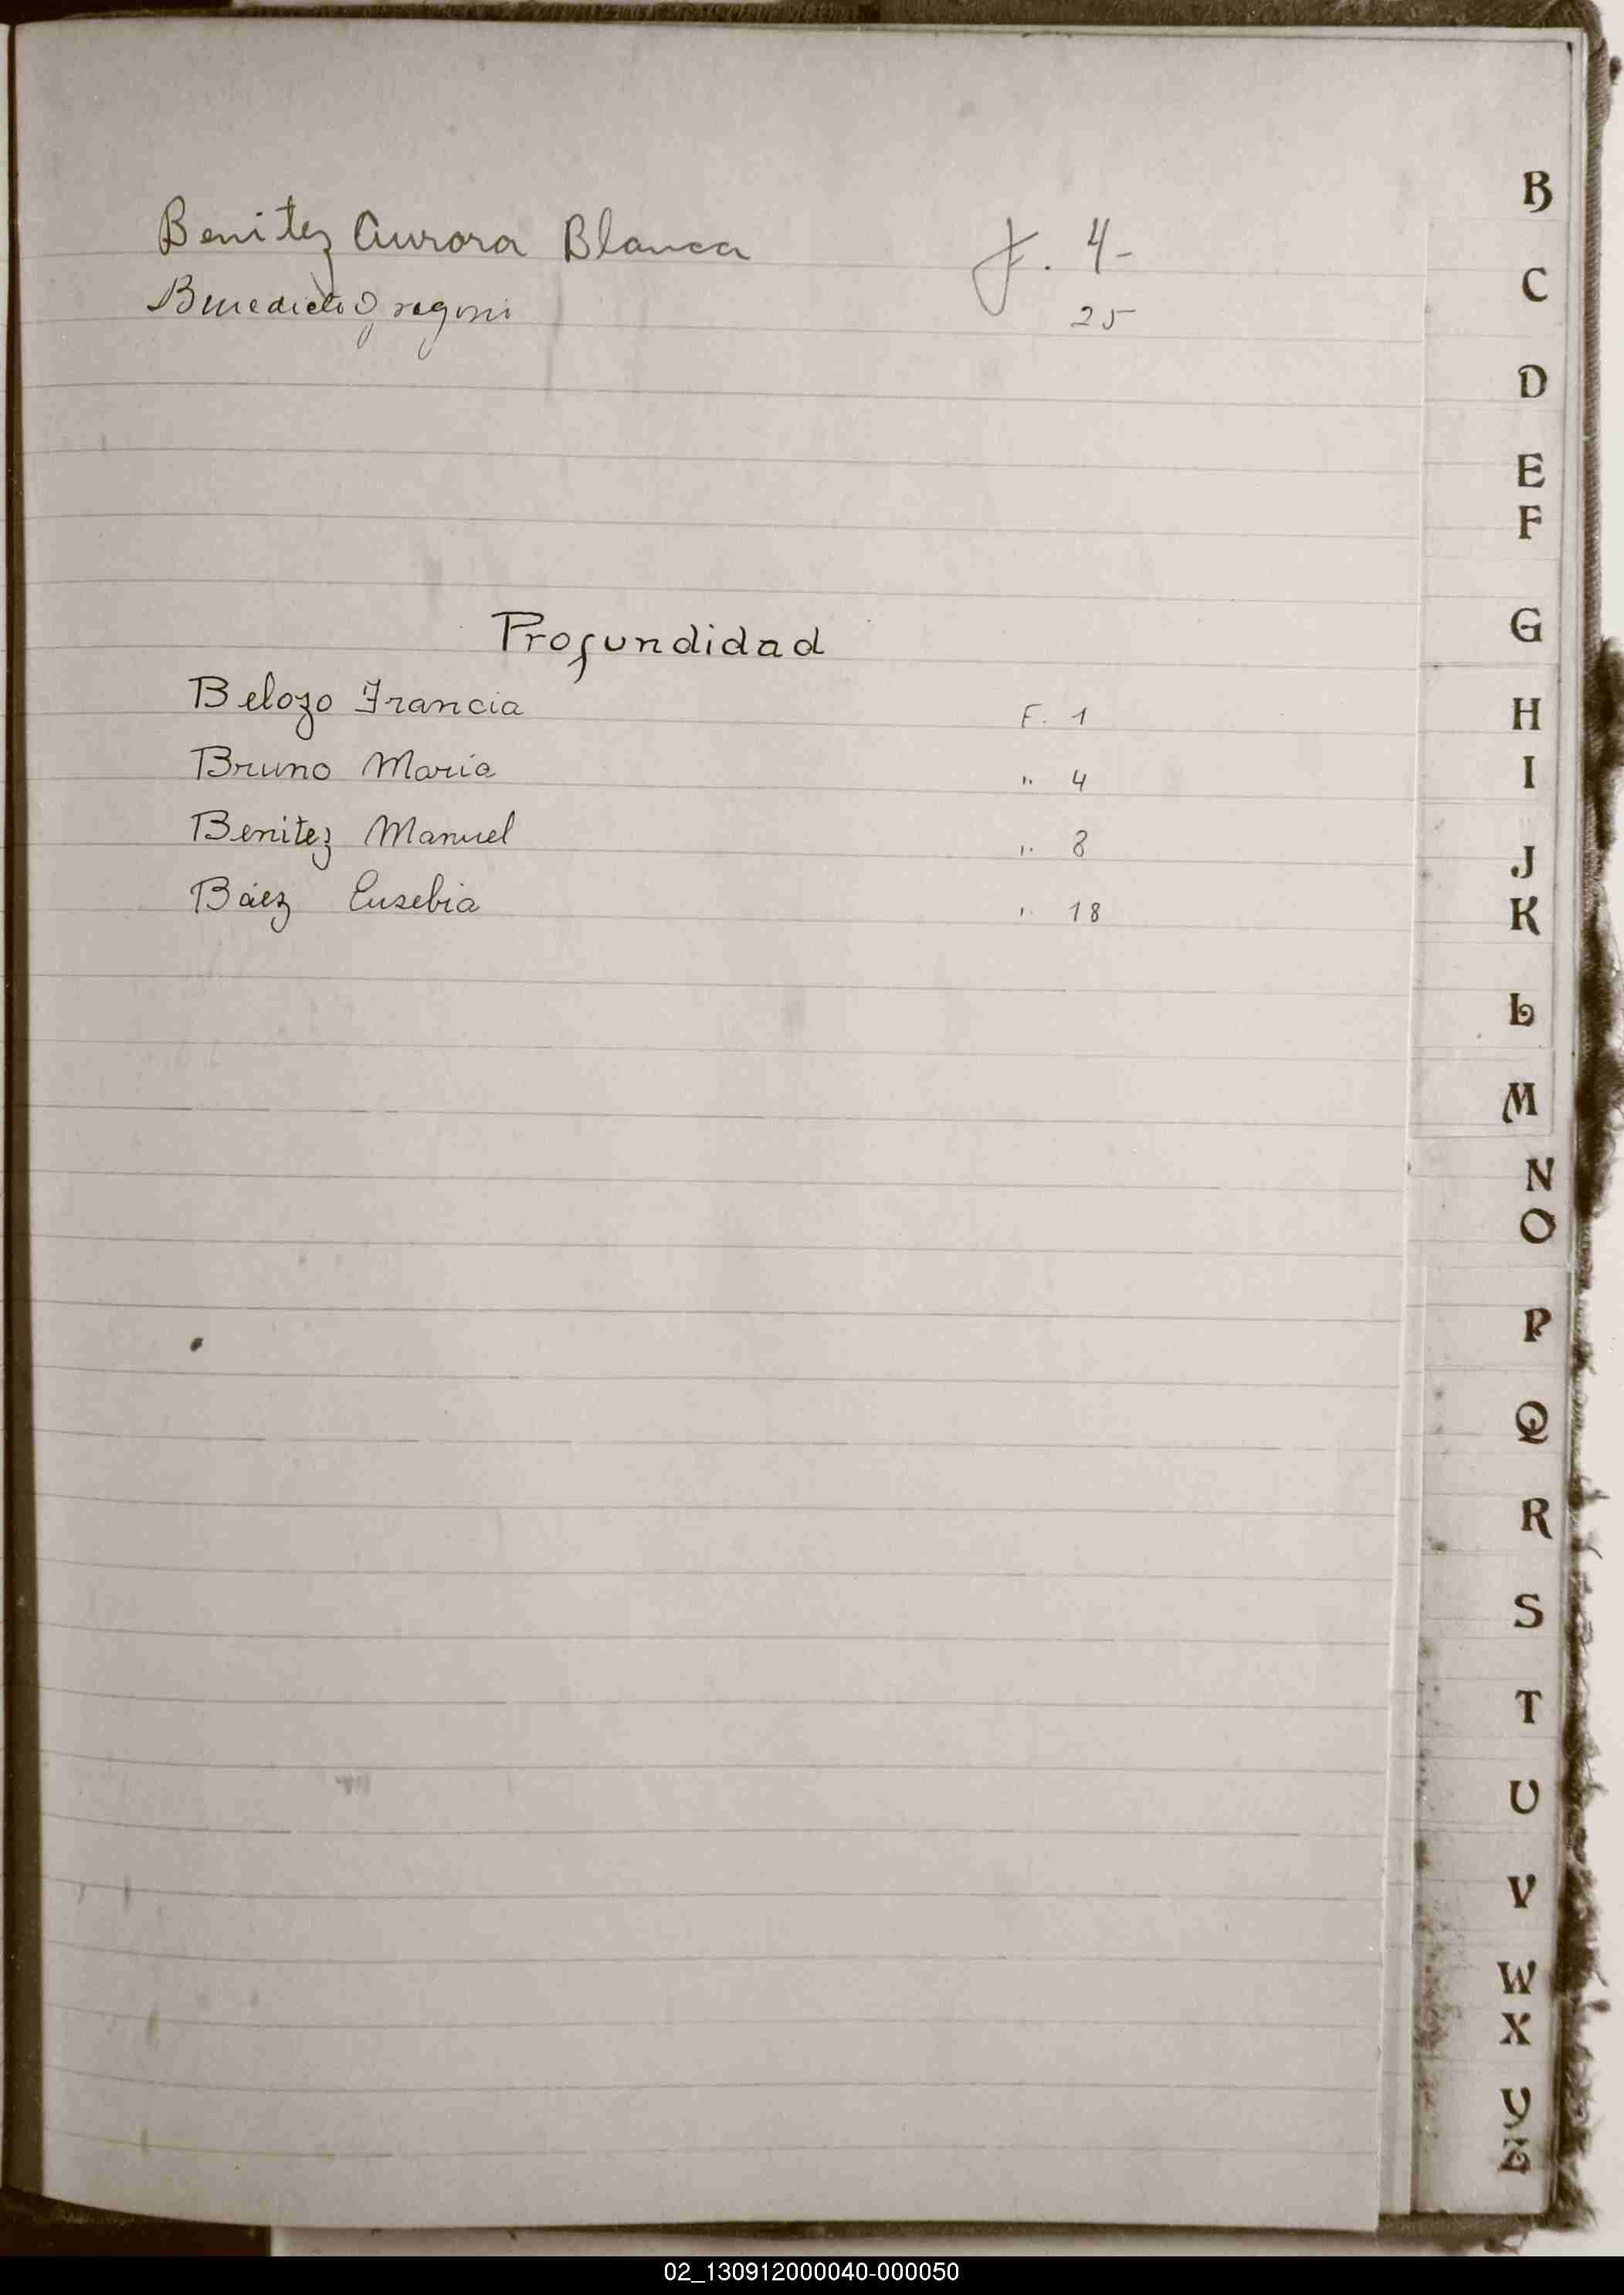 Benitez Aurora Blanca f. 4-
Benedicto 25
Profundidad
Belozo Francia F. 1
Bruno Maria " 4
Benitez Manuel " 8
Báez Eusebia " 18
B
C
D
E
F
G
H
I
J
K
L
M
N
O
P
Q
R
S
T
U
V
W
X
Y
Z
02_130912000040-000050